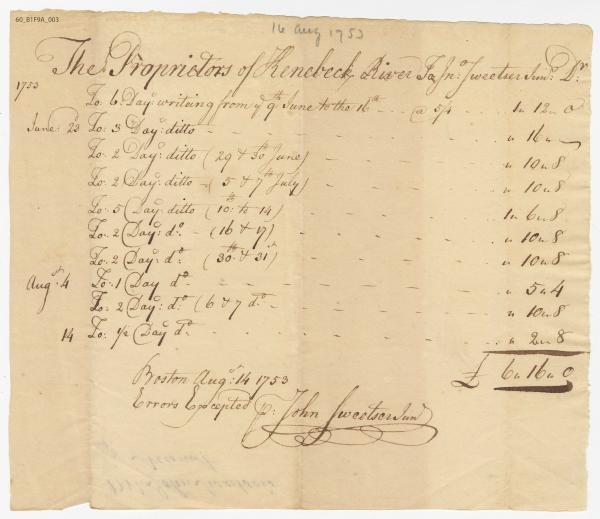 60_B1F9A_003
14 Aug 1753
The Proprietors of Kenebeck River To Jn.o Sweetser Jun.r D.r
1753
To 6 Days writing from y.e 9.th June to the 16.th - - @ 5/4 1 " 12 " 0
June 23 To 3 Days ditto - - - - - - " 16 " -
To 2 Days ditto (29 & 30.th June) - - - - " 10 " 8
To 2 Days ditto - (5 & 7.th July) - - - - " 10 " 8
To 5 Days ditto (10.th to 14) - - - - 1 " 6 " 8
To 2 Days d.o - (16 & 17) - - - - " 10 " 8
To 2 Days d.o (30.th & 31.st) - - - - " 10 " 8
Aug.st 4 To 1 Day d.o - - - - - - " 5 " 4
To 2 Days d.o (6 & 7 d.o - - - - " 10 " 8
14 To 1/2 Day d.o - - - - - - " 2 " 8
£ 6 " 16 " 0
Boston Aug.st 14 1753
Errors Excepted p: John Sweetser Jun.r